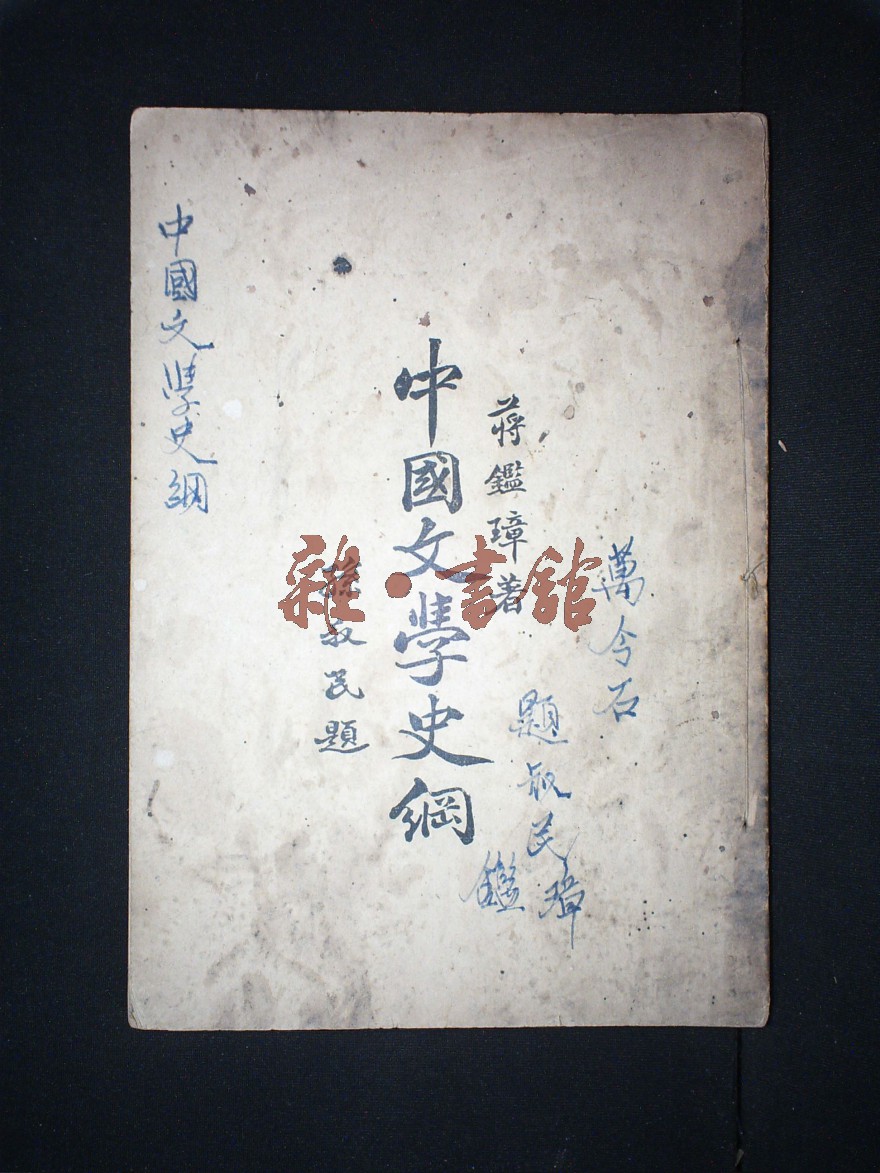 萬今石
題叔民璋
鑑
蔣鑑璋著
中國文學史綱
孫叔民題
中國文學史綱
雜·書館